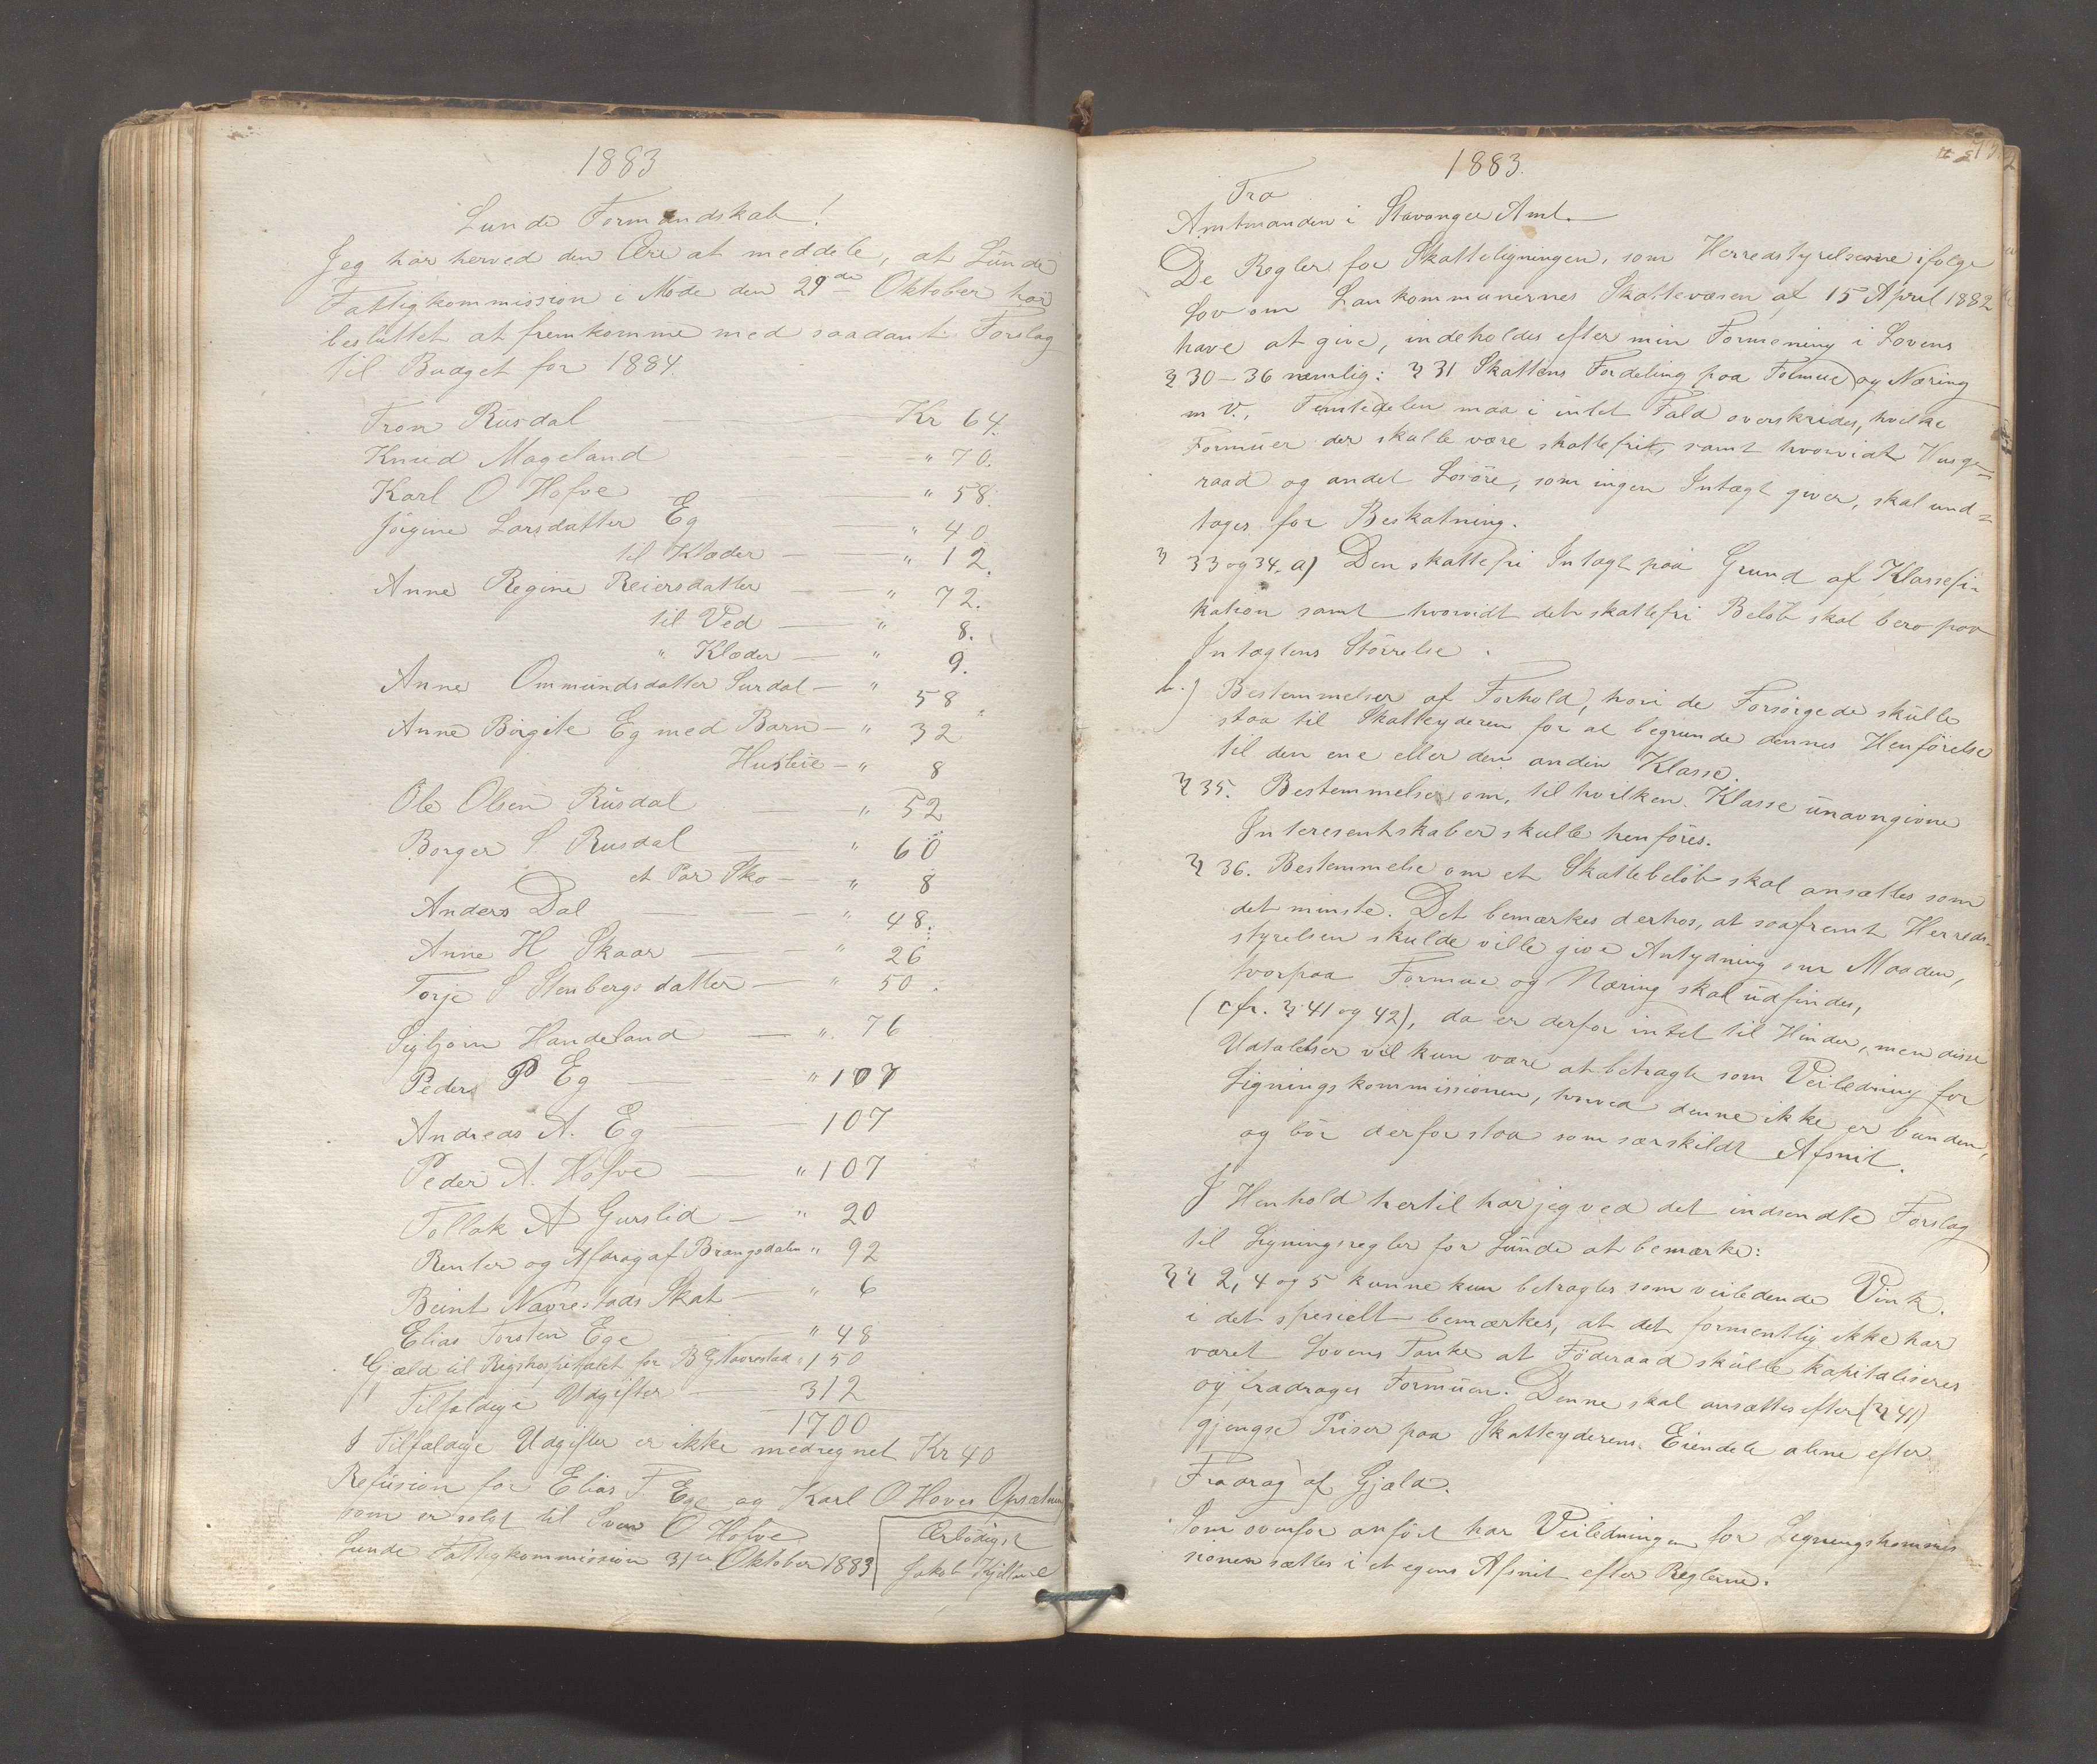 1883
Lunde Formandskab!
Jeg har herved den Ære at meddele, at Lunde
Fattigkommission i Møde den 29de Oktober har
besluttet at fremkomme med saadant Forslag
til Budget for 1884.
Tron Rusdal Kr 64.
Knud Mageland " 70.
Karl O Hofve " 58.
Jörgine Larsdatter Eg " 40
til Klæder " 12.
Anne Regine Reiersdatter " 72.
til Ved " 8.
" Klæder " 9.
Anne Ommundsdatter Surdal " 58
Anne Birgite Eg med Barn " 32
Husleie " 8
Ole Olsen Rusdal " 52
Borger S Rusdal " 60
et Par Sko " 8
Anders Dal " 48.
Anne H Skaar " 26
Torje S Stenbergsdatter " 50.
Sigbjørn Handeland " 76
Peder P Eg " 107
Andreas A. Eg 107
Peder A. Hofve " 107
Tollak A Gurslid " 20
Renter og Afdrag af Brangsdalen " 92
Beint Navrestads Skat " 6
Elias Torsten Ege " 48
Gjæld til Rigshospitalet for B G Navrestad " 150
Tilfældige Udgifter 312
1700
I Tilfældige Udgifter er ikke medregnet Kr 40
Refusion for Elias T Ege og Karl O. Hoves Opsætning
som er solgt til Sven O Hofve
Lunde Fattigkommission 31te Oktober 1883
Ærbödigst
Jakob
1883.
Fra
Amtmanden i Stavanger Amt.
De Regler for Skatteligningen, som Herredstyrelserne ifølge
Lov om Lankommunernes Skattevæsen af 15 April 1882
have at give, indeholdes efter min Formening i Lovens
§ 30-36 nemlig: § 31 Skattens Fordeling paa Formue og Næring
m v., Femtedelen maa i intet Fald overskrides, hvilke
Formuer der skulle være skattefrit, samt hvorvidt Husge=
raad og andet Løsöre, som ingen Intægt giver, skal und=
tages for Beskatning.
§ 33 og 34. a) Den skattefri Intægt paa Grund af Klassefi-
kation samt hvorvidt det skattefri Beløb skal bero paa
Intægtens Størrelse.
b.) Bestemmelser af Forhold, hvori de Forsörgede skulle
staa til Skatteyderen for at begrunde dennes Henförelse
til den ene eller den anden Klasse.
§ 35. Bestemmelse om, til hvilken Klasse unavngivne
Interesentskaber skulle henföres.
§ 36. Bestemmelse om et Skattebeløb skal ansættes som
det minste. Det bemærkes derhos, at saafremt Herreds-
styrelsen skulde ville give Antydning om Maaden,
hvorpaa Formue og Næring skal udfindes,
(cfr. § 41 og 42), da er derfor intet til Hinder, men disse
Udtalelser vil kun være at betragte som Veiledning for
Ligningskommissionen, hvorved denne ikke er bunden,
og bör derfor staa som særskildt Afsnit.
I Henhold hertil har jeg ved det indsendte Forslag
til Ligningsregler for Lunde at bemærke:
§§ 2, 4 og 5 kunne kun betragtes som veiledende Vink.
i det spesielt bemærkes, at det formentlig ikke har
været Lovens Tanke at Föderaad skulle kapitaliseres
og fradrages Formuen. Denne skal ansættes efter (§ 41)
gjengse Priser paa Skatteyderens Eiendele alene efter
Fradrag af Gjæld.
Som ovenfor anført har Veiledningen for Ligningskommis
sionen sættes i et egens Afsnit efter Reglerne.